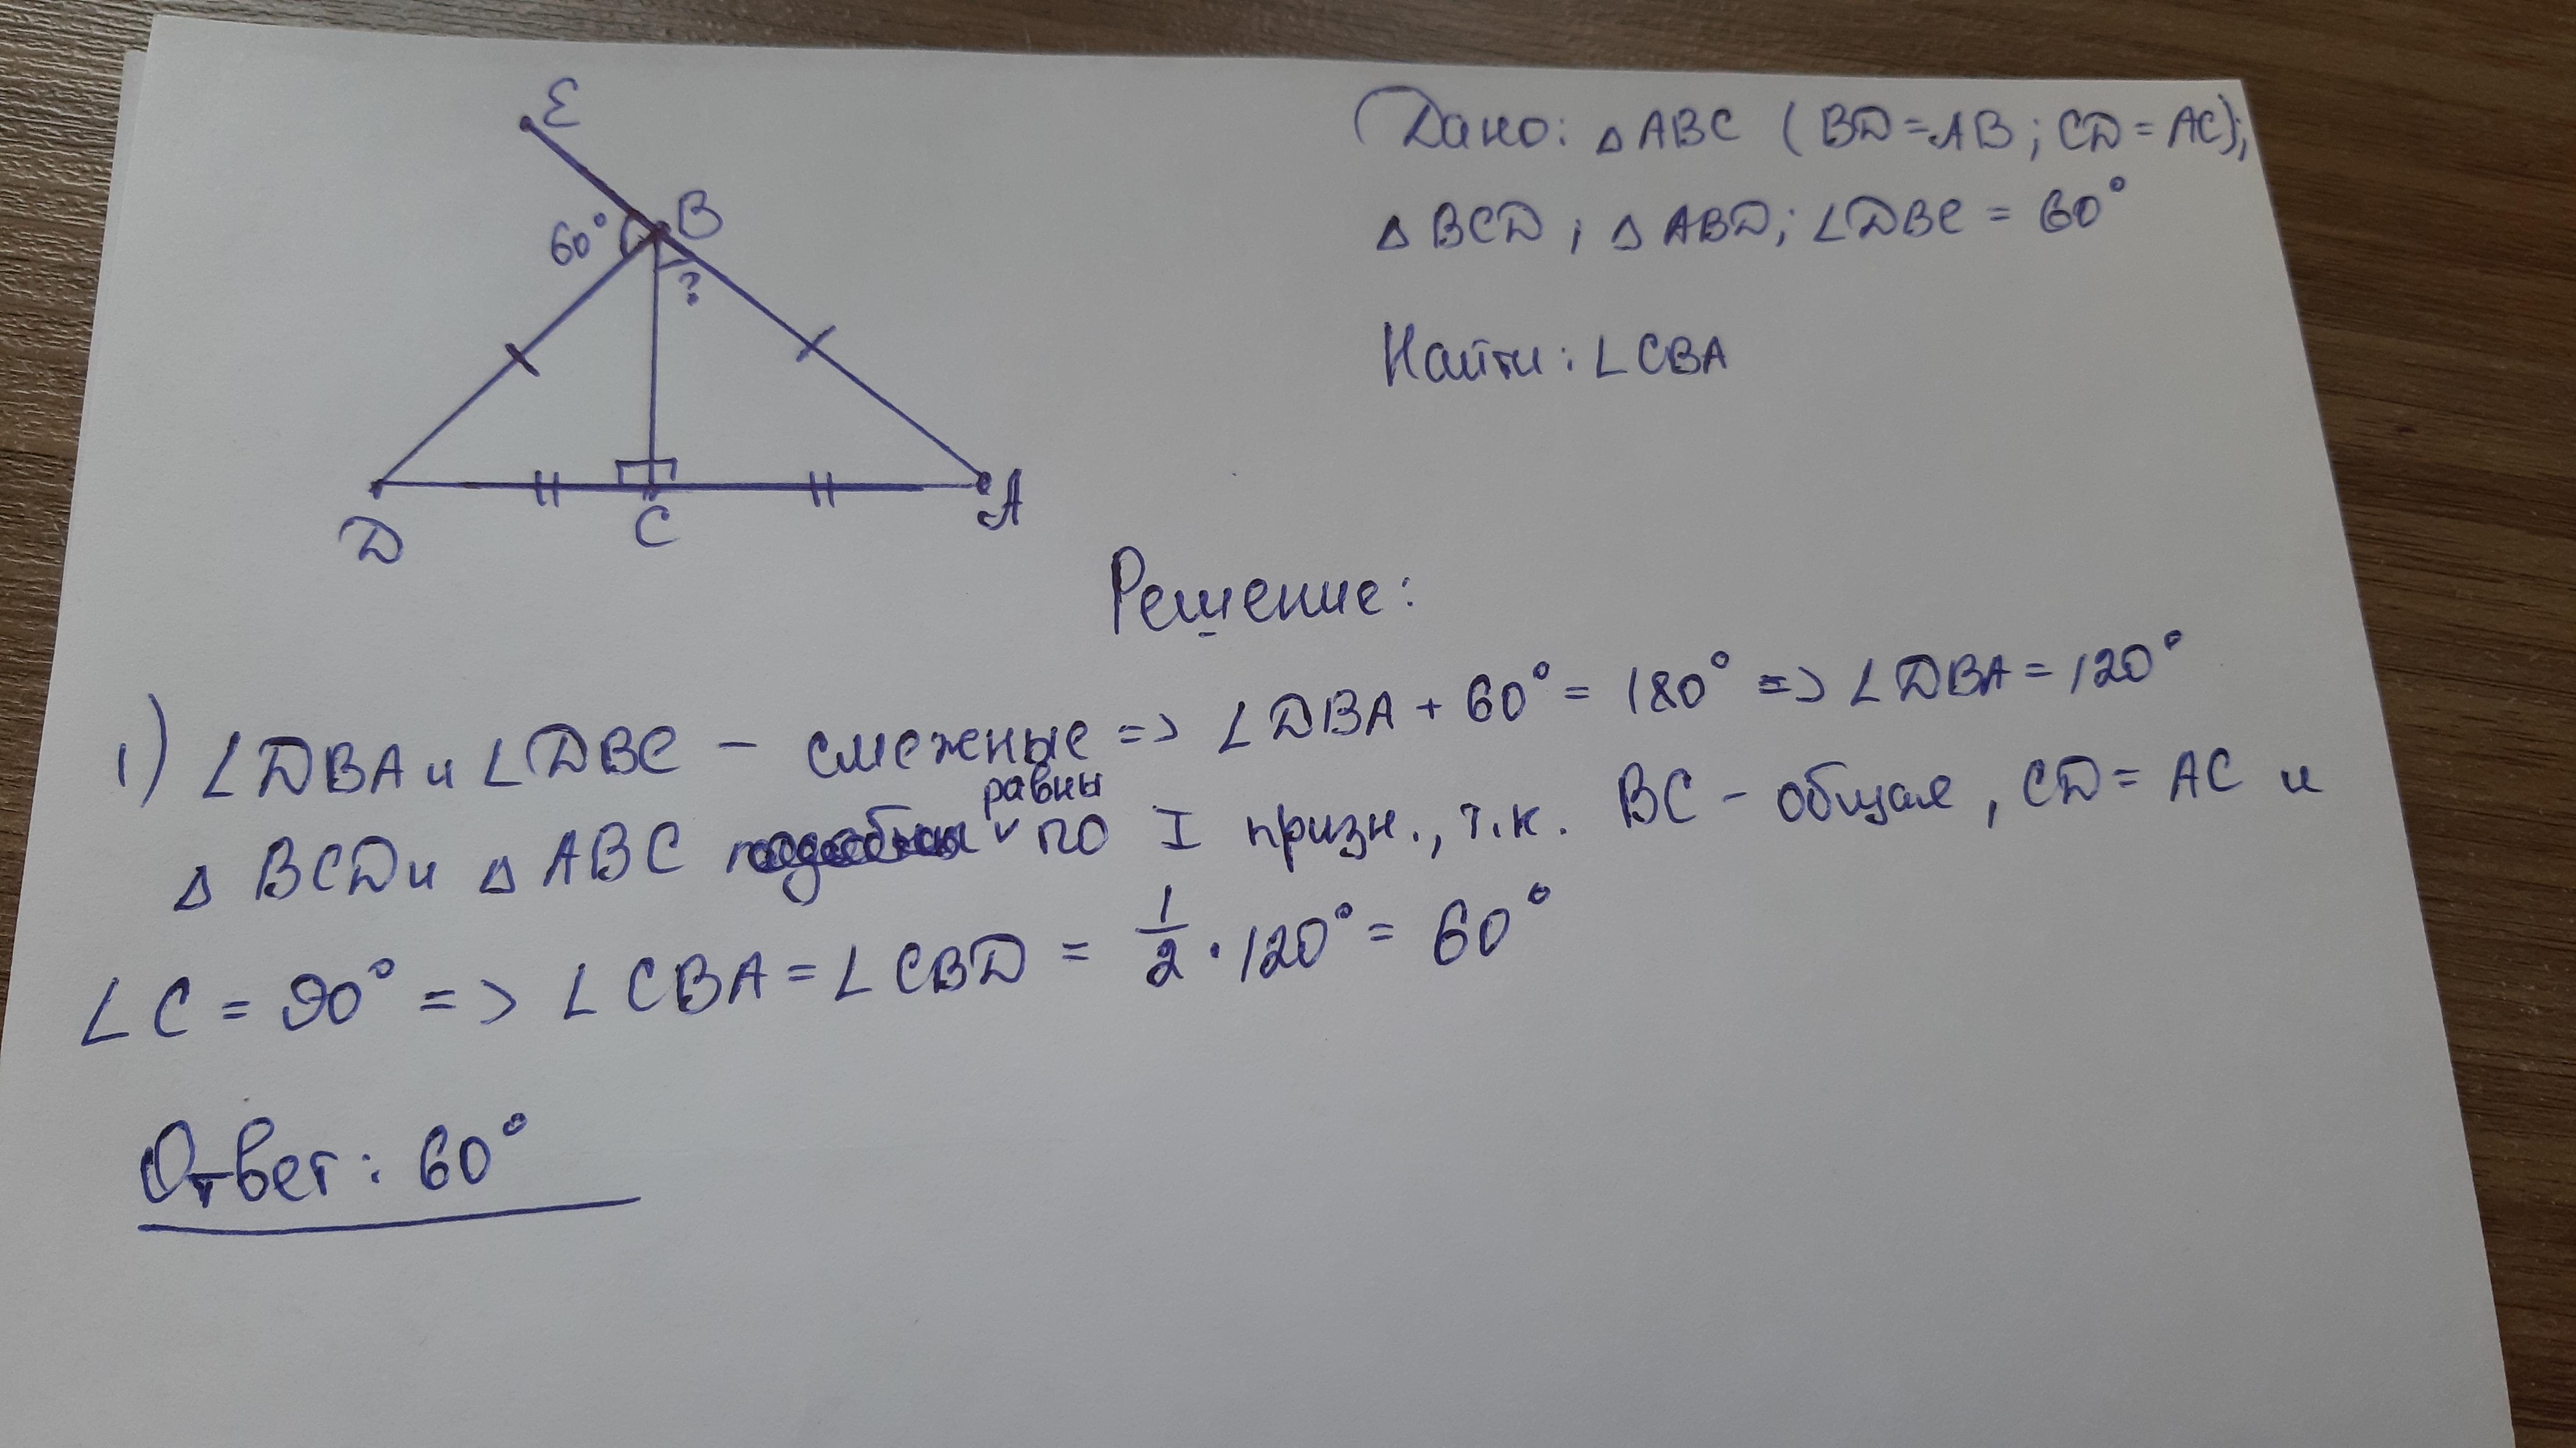 E
60°
B
?
D
C
A
Дано: △ABC (BD=AB; CD=AC);
△BCD; △ABD; ∠DBE = 60°
Найти: ∠CBA
Решение:
1) ∠DBA и ∠DBE - смежные => ∠DBA + 60° = 180° => ∠DBA = 120°
равны
△BCD и △ABC по I призн., т.к. BC - общая, CD = AC и
∠C = 90° => ∠CBA = ∠CBD = 1/2 · 120° = 60°
Ответ: 60°